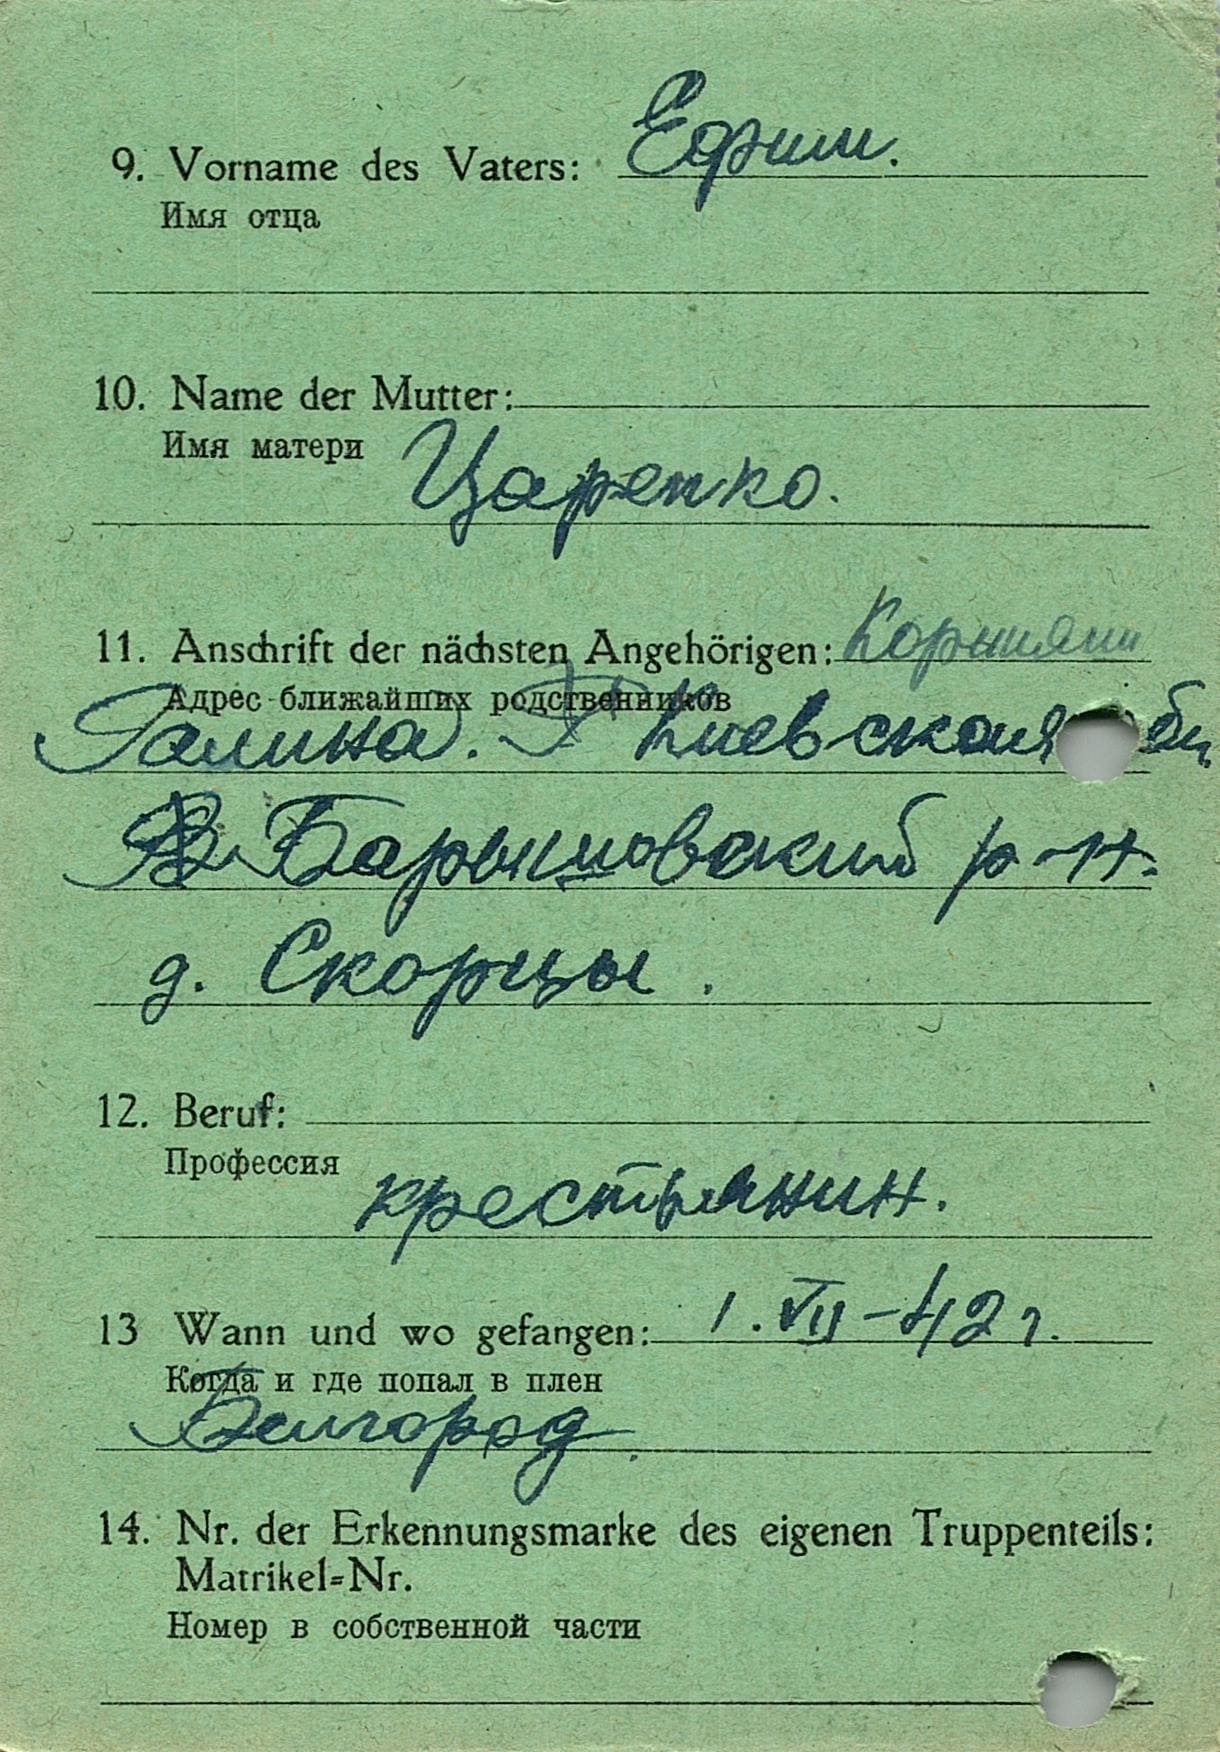 9. Vorname des Vaters: Ефим.
Имя отца
10. Name der Mutter:
Имя матери Царенко.
11. Anschrift der nächsten Angehörigen:
Адрес ближайших родственников
Галина. Киевская обл,
Барышовский р-н.
д. Скорцы.
12. Beruf:
Профессия
крестьянин.
13 Wann und wo gefangen: 1. VII-42 г.
Когда и где попал в плен
Белгород.
14. Nr. der Erkennungsmarke des eigenen Truppenteils:
Matrikel=Nr.
Номер в собственной части